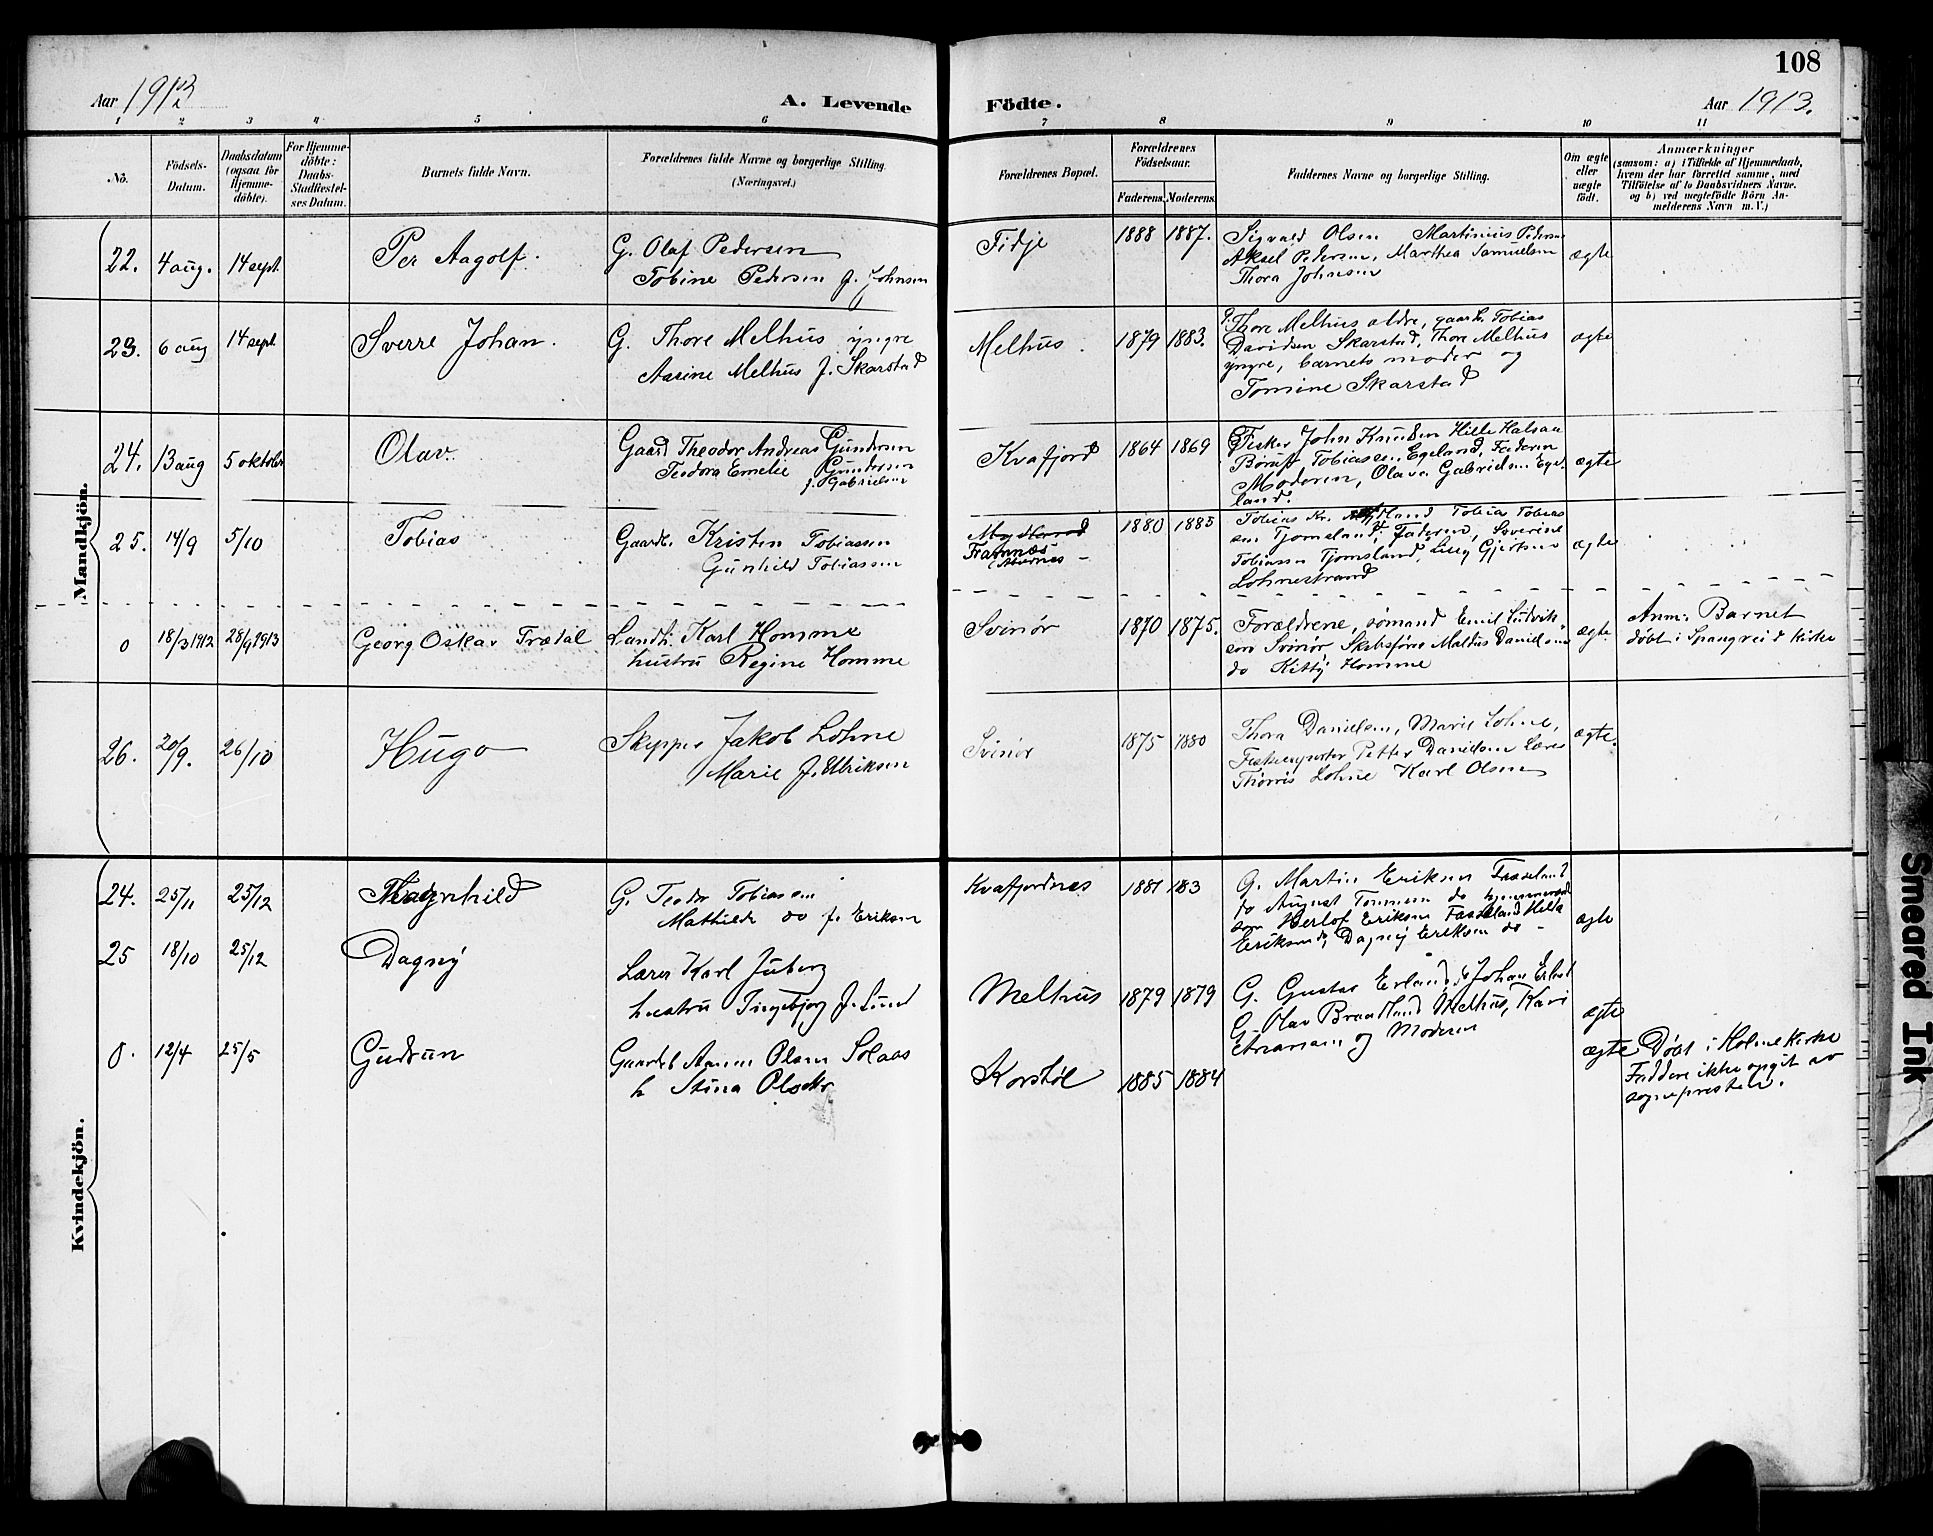 108
Aar 1913
A. Levende Födte.
Aar 1913.
1 2 3 4 5 6 7 8 9 10 11
No.
Födsels-
Datum.
Daabsdatum
(ogsaa for
Hjemme-
döbte).
For Hjemme-
döbte:
Daabs-
Stadfæstel-
ses Datum.
Barnets fulde Navn.
Forældrenes fulde Navne og borgerlige Stilling.
(Næringsvei.)
Forældrenes Bopæl.
Forældrenes
Födselsaar.
Faderens. Moderens.
Faddernes Navne og borgerlige Stilling.
Om ægte
eller
uægte
födt.
Anmærkninger
(saasom: a) i Tilfælde af Hjemmedaab,
hvem der har forrettet samme, med
Tilföielse af to Daabsvidners Navne.
og b) ved uægtefödte Börn An-
melderens Navn m. V.)
Mandkjön.
22. 4 aug. 14 sept. Per Aagolf.
G. Olaf Pedersen
Tobine Pedersen f. Johnsen
Tidje 1888 1887.
Sigvald Olsen Martinius Pedersen
Aksel Pedersen, Marthea Samuelsen
Thora Johnsen
ægte
23. 6 aug 14 sept Sverre Johan.
G. Thore Melhus yngre
Aasine Melhus f. Skarstad
Melhus. 1879 1883.
Thore Melhus ældre, gaardb. Tobias
Davidsen Skarstad, Thore Melhus
yngre, barnets moder og
Tomine Skarstad
ægte
24. 13 aug 5 oktober Olav.
Gaard Theodor Andreas Gundersen
Teodora Emelie Gundersen
f. Gabrielsen
Kvafjord 1864 1869
Fisker John Knudsen Hille Halsaa
Børuft Tobiassen Egeland, Faderen
Moderen, Olava Gabrielsen Ege-
land.
ægte
25. 14/9 5/10 Tobias
Gaardb. Kristen Tobiassen
Gunhild Tobiassen
Farnnes
1880 1885
Tobias Kr. Tobias Tobias
sen Tjomsland, Faderen, Severine
Tobiassen Tjomsland, Lisey Gjertsen
Lohnestrand
ægte
0 18/3 1912 28/9 1913 Georg Oskar Trædal
Landh. Karl Homme
hustru Regine Homme
Svinør 1870 1875.
Forældrene, sømand Emil Ludvik-
sen Svinør, Skibsfører Maldus Danielsen
do Kitty Homme
ægte
Anm: Barnet
døbt i Spangreid kirke
26. 20/9. 26/10 Hugo
Skipper Jakob Lohne
Marie f. Ulriksen
Svinør 1875 1880
Thora Danielsen, Marie Lohne,
Fiskeexportør Petter Danielsen Lærer
Thorvis Lohne Karl Olsen
ægte.
Kvindekjön.
24. 25/11 25/12 Magnhild
G. Teodor Tobiassen
Mathilde do f. Eriksen
Kvafjordnes 1881 183
G. Martin Eriksen Fasseland
do August Tønnesen do hjemmevæ
som Herlof Eriksen Fasseland Hella
Eriksen do, Dagny Eriksen do -
ægte
25 18/10 25/12 Dagny
Lærer Karl Juberg
hustru Ingebjorg f. Lund
Melhus 1879 1879
G. Gustav Erland, do Johan Erland
G. Olav Braatland Melhus, Kari
Abrahamsen og Moderen
ægte
0. 12/4 25/5 Gudrun
Gaardb Aanen Olsen Solaas
h Stina Olsen
Korstøl 1885 1884
ægte
Døbt i Holme Kirke
Faddere ikke opgit av
sognepresten.
Smeared Ink